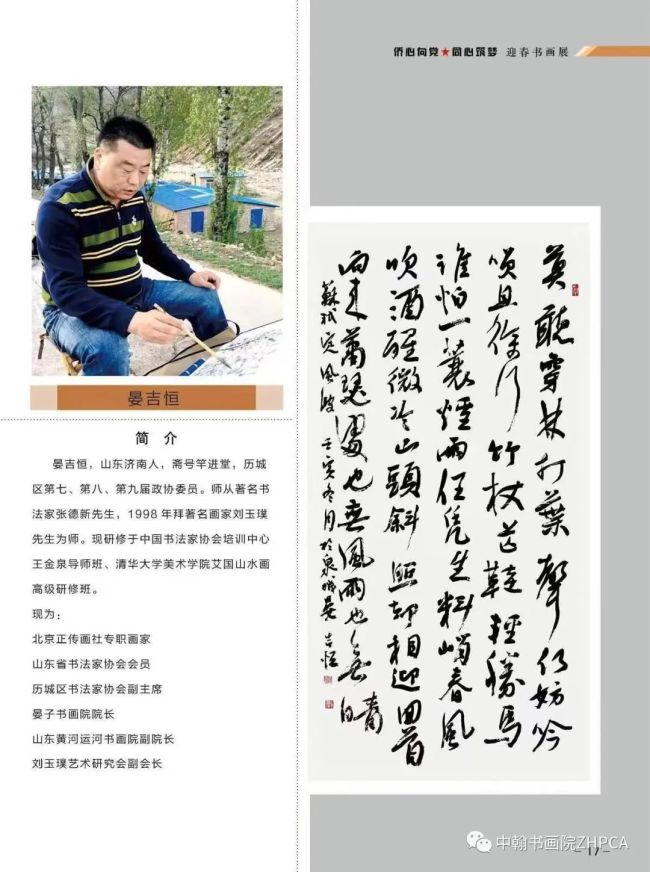 侨心向党★同心筑梦 迎春书画展
晏吉恒
简 介
晏吉恒，山东济南人，斋号竿进堂，历城
区第七、第八、第九届政协委员。师从著名书
法家张德新先生，1998 年拜著名画家刘玉璞
先生为师。现研修于中国书法家协会培训中心
王金泉导师班、清华大学美术学院艾国山水画
高级研修班。
现为：
北京正传画社专职画家
山东省书法家协会会员
历城区书法家协会副主席
晏子书画院院长
山东黄河运河书画院副院长
刘玉璞艺术研究会副会长
莫聽穿林打葉聲何妨吟
嘯且徐行竹杖芒鞋輕勝馬
誰怕一蓑煙雨任凭生料峭春風
吹酒醒微冷山頭斜照却相迎回首
向来蕭瑟處也無風雨也無晴
蘇軾定風波 壬寅冬月於泉城晏吉恒
中翰书画院ZHPCA
- 17 -